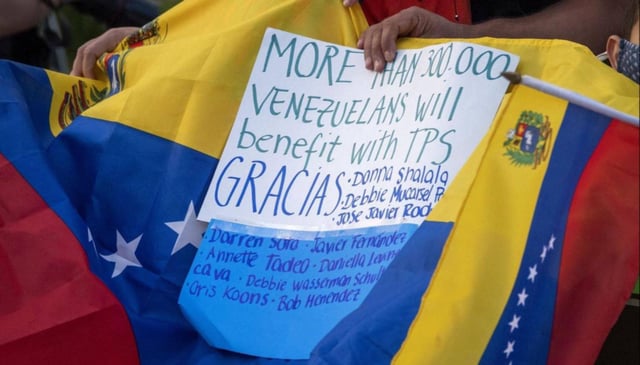 MORE THAN 300,000
VENEZUELANS WILL
benefit with TPS
GRACIAS · Donna Shalala
· Debbie Mucarsel
· Jose Javier Rod
Darren Soto · Javier Fernández
· Annette Tadeo · Daniella Levin
cava · Debbie wasserman Schul
· Cris Koons · Bob Menéndez